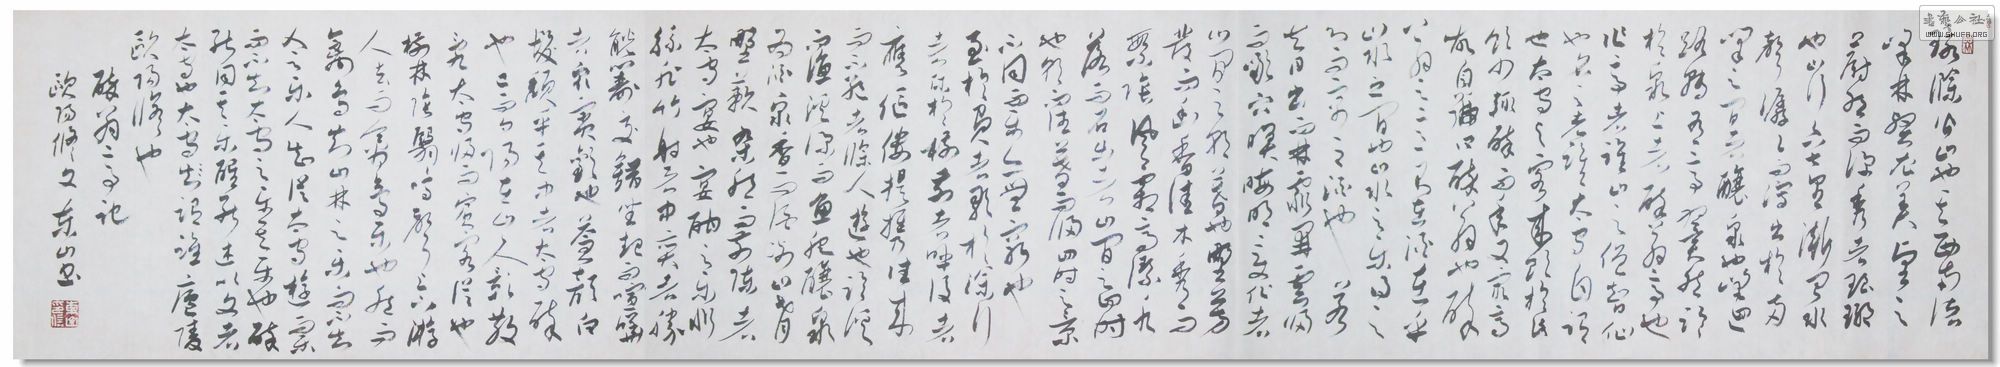 環滁皆山也其西南諸
峰林壑尤美望之
蔚然而深秀者琅琊
也山行六七里漸聞水
聲潺潺而瀉出於兩
峰之間者釀泉也峰回
路轉有亭翼然臨
於泉上者醉翁亭也
作亭者誰山之僧智仙
也名之者誰太守自謂
也太守與客來飲於此
飲少輒醉而年又最高
故自號曰醉翁也醉
翁之意不在酒在乎
山水之間也山水之樂得之
心而寓之酒也若
夫日出而林霏開雲歸
而巖穴暝晦明變化者
山間之朝暮也野芳
發而幽香佳木秀而
繁陰風霜高潔水
落而石出者山間之四時
也朝而往暮而歸四時之景
不同而樂亦無窮也
至於負者歌於塗行
者休於樹前者呼後者
應傴僂提攜往來
而不絕者滁人遊也臨谿
而漁谿深而魚肥釀泉
為酒泉香而酒洌山肴
野蔌雜然而前陳者
太守宴也宴酣之樂非
絲非竹射者中奕者勝
觥籌交錯坐起而諠譁
者衆賓歡也蒼顏白
髮頹乎其中者太守醉
也已而夕陽在山人影散
亂太守歸而賓客從也
樹林陰翳鳴聲上下游
人去而禽鳥樂也然而
禽鳥知山林之樂而不知
人之樂人知從太守遊而樂
而不知太守之樂其樂也醉
能同其樂醒能述以文者
太守也太守謂誰廬陵
歐陽修也
醉翁亭記
歐陽修文東山書
書法公社
WWW.SHUFA.ORG